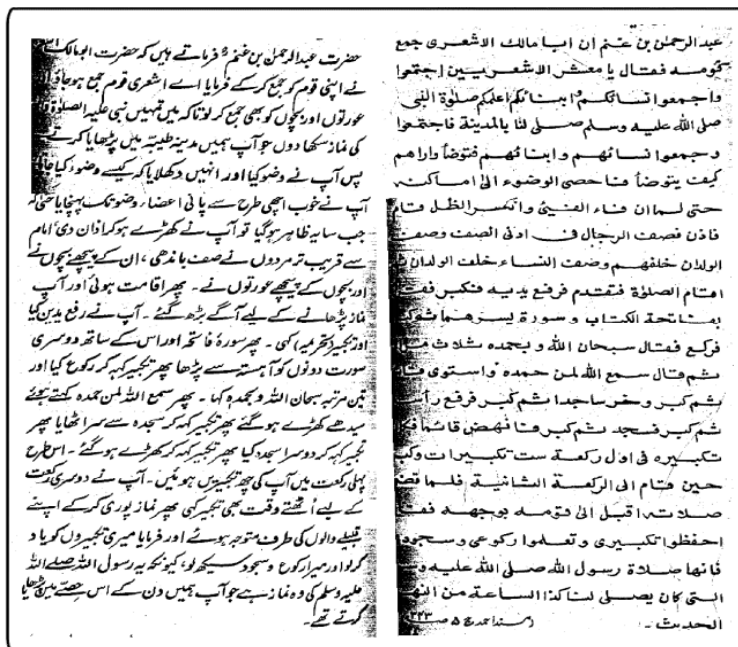 عبدالرحمٰن بن غنم ان ابا مالك الاشعرى جمع
قومه فقال يا معشر الاشعريين اجتمعوا
واجمعوا نسائكم وابنائكم اعلمكم صلوٰة النبى
صلى الله عليه وسلم صلى لنا بالمدينة فاجتمعوا
وجمعوا نسائهم وابنائهم فتوضأ واراهم
كيف يتوضأ فاحصى الوضوء الى اماكنه
حتى لما ان فاء الفيئ وانكسر الظل قام
فاذن فصف الرجال فى ادنى الصف وصف
الولدان خلفهم وصف النساء خلف الولدان ثم
اقام الصلوٰة فتقدم فرفع يديه فكبر فقرأ
بفاتحة الكتاب و سورة يسرهما ثم كبر
فركع فقال سبحان الله و بحمده ثلاث مرار
ثم قال سمع الله لمن حمده واستوى قائما
ثم كبر وخر ساجدا ثم كبر فرفع رأسه
ثم كبر فسجد ثم كبر فانهض قائما فكان
تكبيره فى اول ركعة ست تكبيرات وكبر
حين قام الى الركعة الثانية فلما قضى
صلاته اقبل الى قومه بوجهه فقال
احفظوا تكبيرى وتعلموا ركوعى وسجودى
فانها صلاة رسول الله صلى الله عليه وسلم
التى كان يصلى لنا كذا الساعة من النهار
الحديث ـ (مسند احمد ج ۵ ص ۳۴۳)
حضرت عبدالرحمٰن بن غنم فرماتے ہیں کہ حضرت ابو مالک
نے اپنی قوم کو جمع کر کے فرمایا اے اشعری قوم جمع ہو جاؤ
عورتوں اور بچوں کو بھی جمع کر لو تاکہ میں تمہیں نبی علیہ الصلوٰة
کی نماز سکھا دوں جو آپ ہمیں مدینہ طیبہ میں پڑھایا کرتے
پس آپ نے وضو کیا اور انہیں دکھلایا کہ کیسے وضو کیا جاتا
آپ نے خوب اچھی طرح سے پانی اعضاء وضو تک پہنچایا حتی کہ
جب سایہ ظاہر ہو گیا تو آپ نے کھڑے ہو کر اذان دی امام
سے قریب تر مردوں نے صف باندھی، ان کے پیچھے بچوں نے
اور بچوں کے پیچھے عورتوں نے۔ پھر اقامت ہوئی اور آپ
نماز پڑھانے کے لیے آگے بڑھ گئے۔ آپ نے رفع یدین کیا
اور تکبیر (تحریمہ) کہی۔ پھر سورۂ فاتحہ اور اس کے ساتھ دوسری
سورت دونوں کو آہستہ سے پڑھا پھر تکبیر کہہ کر رکوع کیا اور
تین مرتبہ سبحان اللہ وبحمدہ کہا۔ پھر سمع اللہ لمن حمدہ کہتے ہوئے
سیدھے کھڑے ہو گئے پھر تکبیر کہہ کر سجدہ سے سر اٹھایا پھر
تکبیر کہہ کر دوسرا سجدہ کیا پھر تکبیر کہہ کر کھڑے ہو گئے۔ اس طرح
پہلی رکعت میں آپ کی چھ تکبیریں ہوئیں۔ آپ نے دوسری رکعت
کے لیے اُٹھتے وقت بھی تکبیر کہی پھر نماز پوری کر کے اپنے
قبیلے والوں کی طرف متوجہ ہوئے اور فرمایا میری تکبیروں کو یاد
کر لو اور میرا رکوع و سجود سیکھ لو، کیونکہ یہ رسول اللہ صلے اللہ
علیہ وسلم کی وہ نماز ہے جو آپ ہمیں دن کے اس حصے میں پڑھایا
کرتے تھے۔